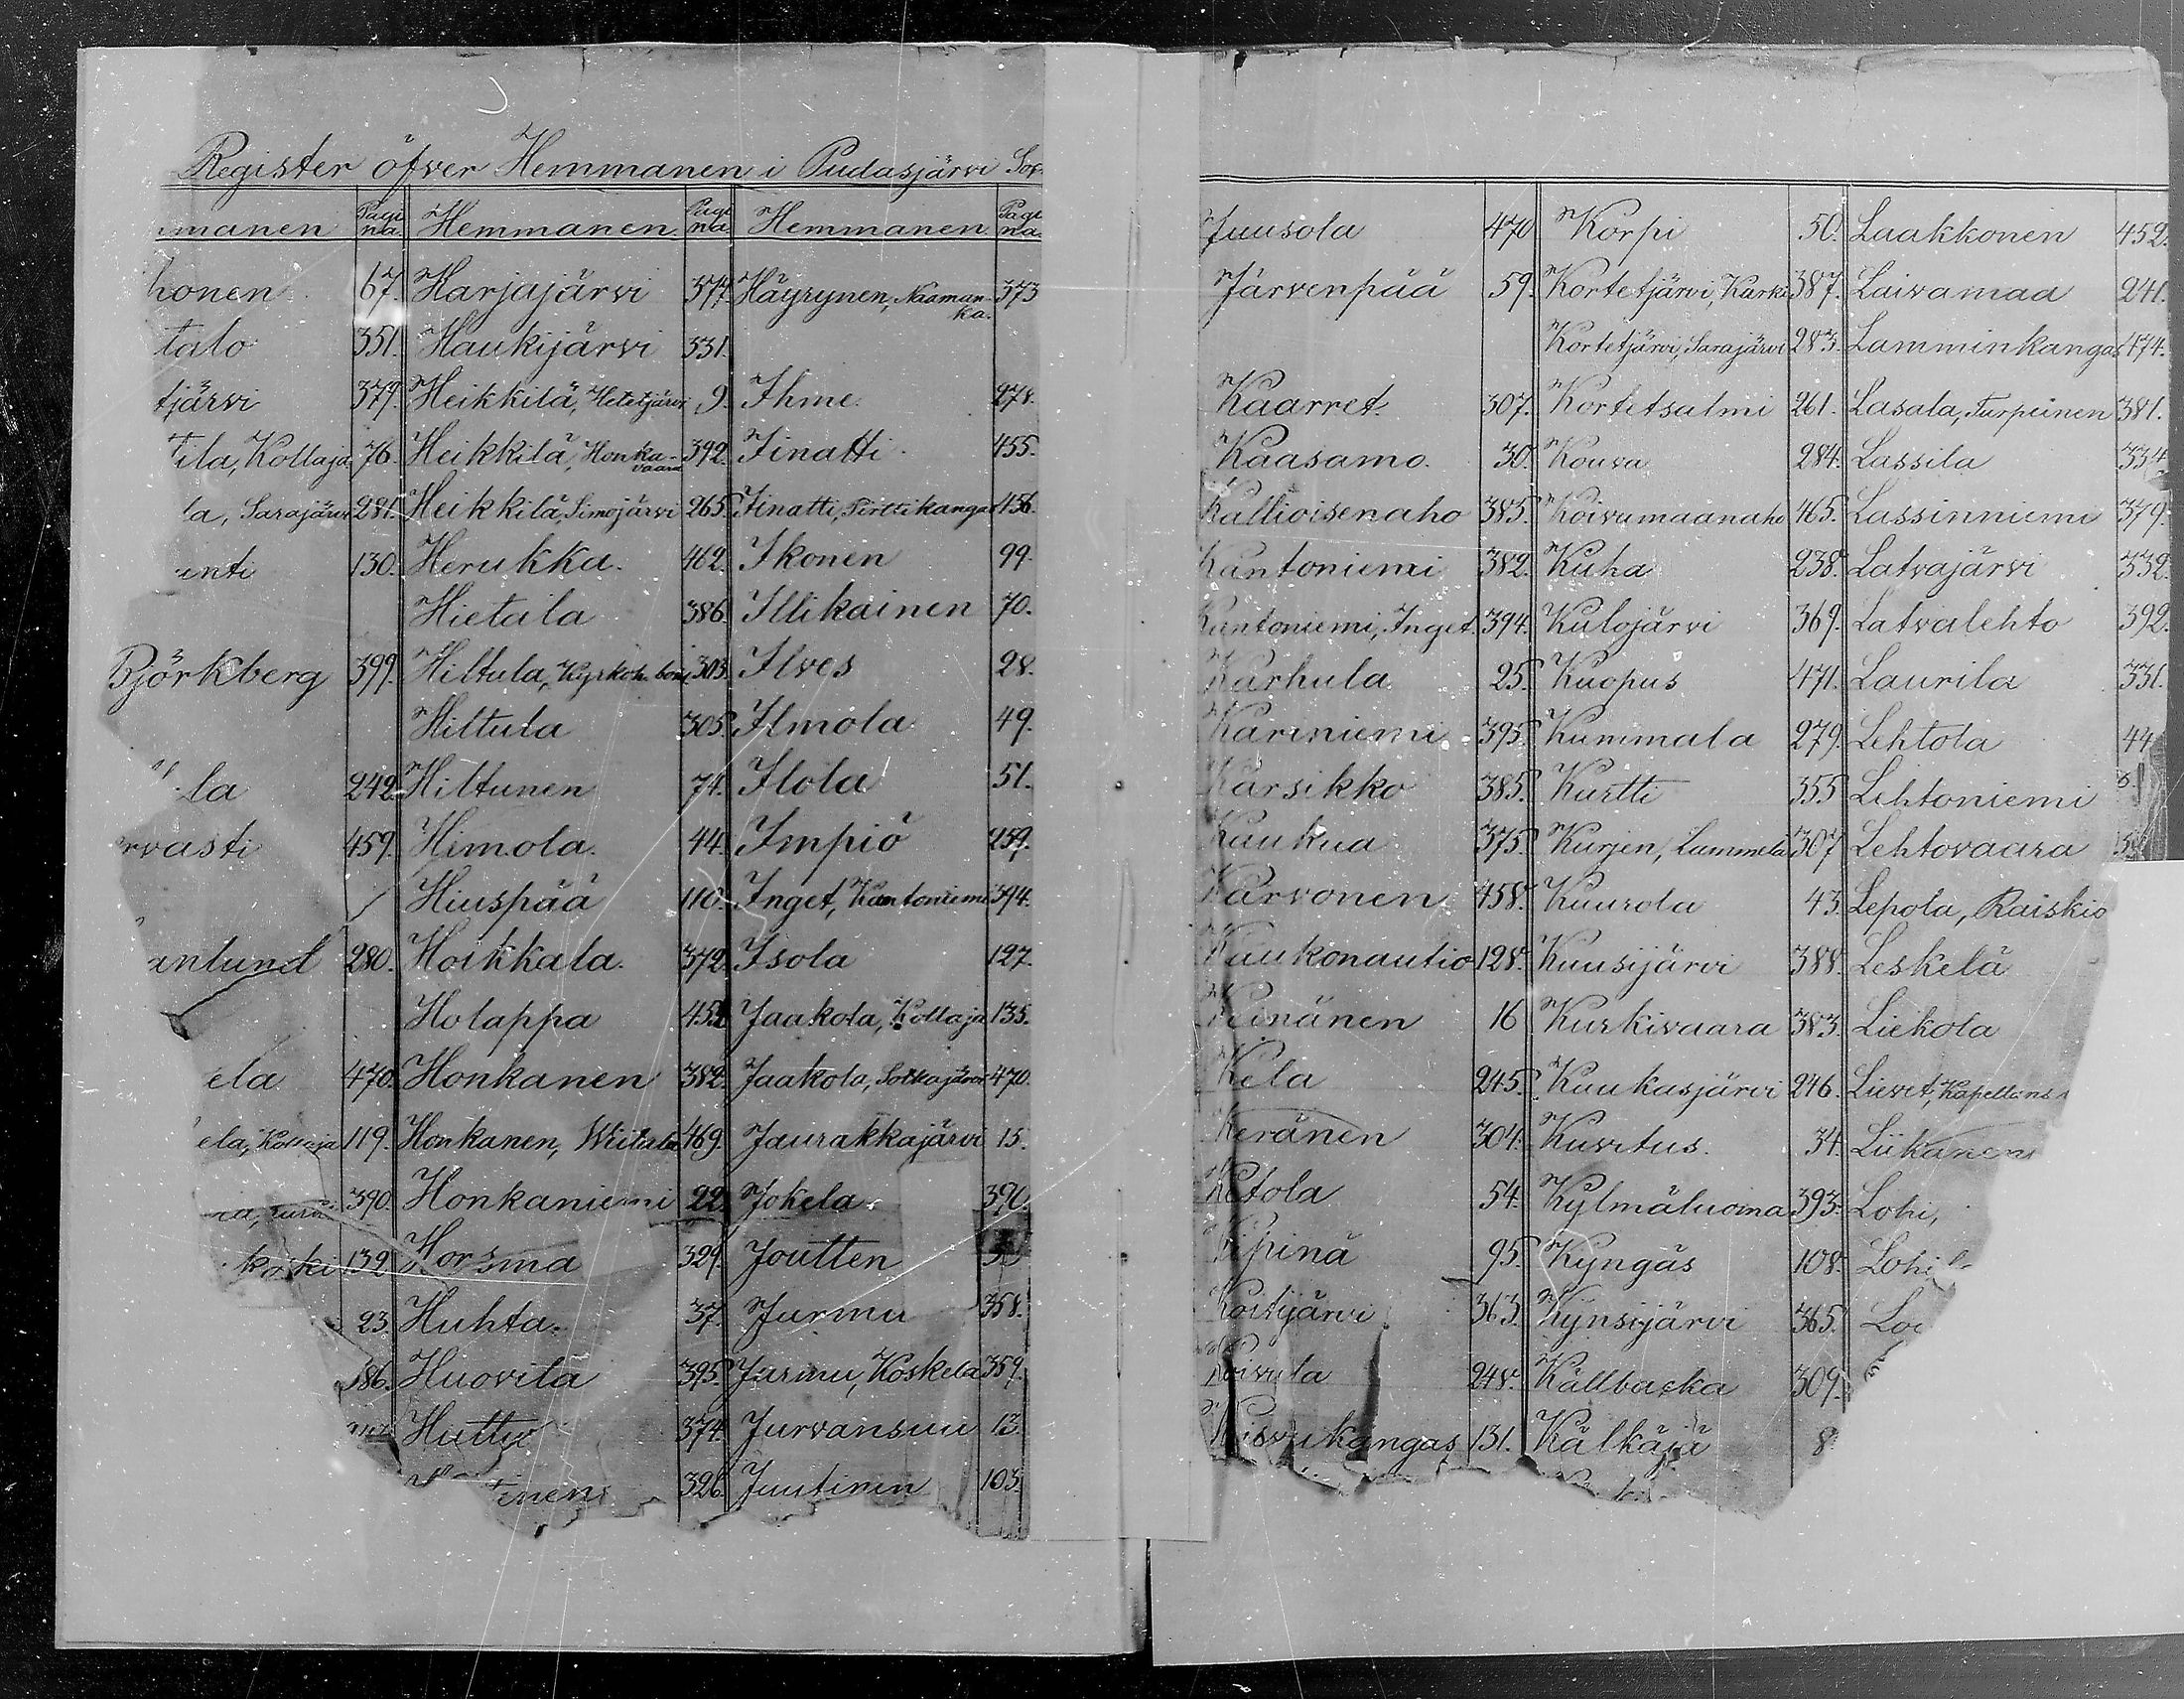 Register öfver Hemmanen i Pudasjärvi Soc
manen Pagina Hemmanen Pagina Hemmanen Pagina
honen 67. Harjajärvi 377. Häyrynen, Naamanka. 373
talo 351. Haukijärvi 331.
tjärvi 379. Heikkilä, Hetetjärvi 9. Ihme 278.
tila, Kollaja 76. Heikkilä, Honkavaara 392. Iinatti 455.
la, Sarajärvi 281. Heikkilä, Simojärvi 265. Iinatti, Pirttikangas 456.
enti 130. Herukka 462. Ikonen 99.
Hietala 386. Illikainen 70.
Björkberg 399. Hiltula, Kyrkoh. bos. 303. Ilves 28.
Hiltula 305. Ilmola 49.
la 242. Hiltunen 74. Ilola 51.
rvasti 459. Himola 44. Impiö 259.
Hiuspää 110. Inget, Kantoniemi 394.
anlund 280. Hoikkala 372. Isola 127.
Holappa 452 Jaakola, Kollaja 135.
ela 470. Honkanen 382. Jaakola, Sotkajärvi 470.
ela, Kollaja 119. Honkanen, Wiitala 469. Jaurakkajärvi 15.
390. Honkaniemi 22. Jokela 390.
koski 132 Horsma 329. Joutten
23. Huhta 37. Jurmu 358.
386. Huovila 395. Jurmu, Koskela 359.
Huttu 374. Jurvansuu 13.
enen 326. Juutinen 103.
Juusola 470 Korpi 50. Laakkonen 452.
Järvenpää 59. Kortetjärvi, Karki 387. Laivamaa 241.
Kortetjärvi, Sarajärvi 283. Lamminkangas 474.
Kaarret 307. Kortetsalmi 261. Lasala, Turpeinen 381.
Kaasamo 30. Kouva 284. Lassila 334
Kallioisenaho 385. Koivumaanaho 465. Lassinniemi 379.
Kantoniemi 382. Kuha 238. Latvajärvi 332.
Kantoniemi, Inget. 394. Kulojärvi 369. Latvalehto 392.
Karhula 25. Kuopus 471. Laurila 331.
Kariniemi 395. Kummala 279. Lehtola 44
Karsikko 385. Kurtti 355 Lehtoniemi
Kaukua 375. Kurjen, Lammela 307 Lehtovaara
Karvonen 458. Kuurola 43. Lepola, Raiskio
Kaukonautio 128. Kuusijärvi 388. Leskelä
Keinänen 16 Kurkivaara 383. Liekola
Kela 245. Kuukasjärvi 246. Lievet, Kapellans
Keränen 304. Kuvitus 34. Liikanen
Ketola 54. Kylmäluoma 393. Lohi,
Kipinä 95. Kyngäs 108. Lohi
Koitijärvi 363. Kynsijärvi 365. Lo
Koivula 248. Källbacka 309.
Koivukangas 131. Kälkäjä 8